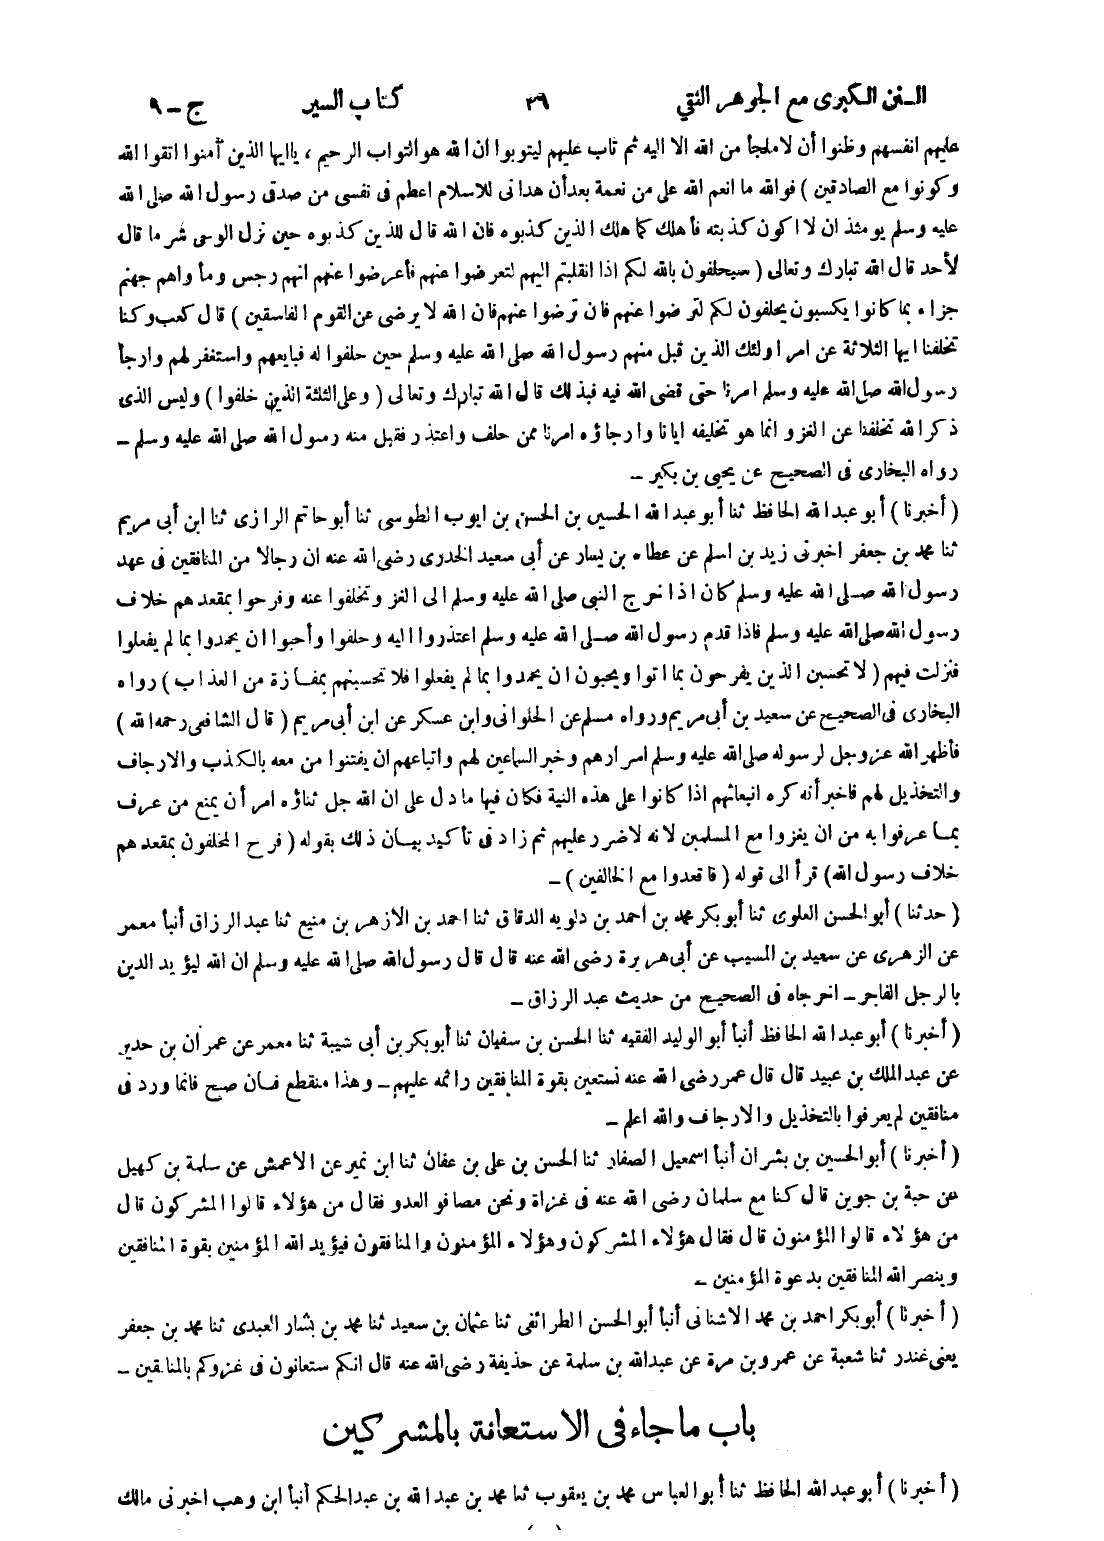 السنن الكبرى مع الجوهر النقي ٣٦ كتاب السير ج – ٩
عليهم انفسهم وظنوا أن لا ملجأ من الله الا اليه ثم تاب عليهم ليتوبوا ان الله هو التواب الرحيم ، ياايها الذين آمنوا اتقوا الله
وكونوا مع الصادقين ) فوالله ما انعم الله على من نعمة بعد أن هدانى للاسلام اعظم فى نفسى من صدقى رسول الله صلى الله
عليه وسلم يومئذ ان لا اكون كذبته فأهلك كما هلك الذين كذبوه فان الله قال للذين كذبوه حين نزل الوحى شر ما قال
لأحد قال الله تبارك وتعالى ( سيحلفون بالله لكم اذا انقلبتم اليهم لتعرضوا عنهم فأعرضوا عنهم انهم رجس ومأواهم جهنم
جزاء بما كانوا يكسبون يحلفون لكم لترضوا عنهم فان ترضوا عنهم فان الله لا يرضى عن القوم الفاسقين ) قال كعب وكنا
تخلفنا ايها الثلاثة عن امر اولئك الذين قبل منهم رسول الله صلى الله عليه وسلم حين حلفوا له فبايعهم واستغفر لهم وارجأ
رسول الله صلى الله عليه وسلم امرنا حتى قضى الله فيه فبذلك قال الله تبارك وتعالى ( وعلى الثلثة الذين خلفوا ) وليس الذى
ذكر الله تخلفنا عن الغزو انما هو تخليفه ايانا وارجاؤه امرنا ممن حلف واعتذر فقبل منه رسول الله صلى الله عليه وسلم –
رواه البخارى فى الصحيح عن يحيى بن بكير –
( أخبرنا ) أبو عبد الله الحافظ ثنا أبو عبد الله الحسين بن الحسن بن ايوب الطوسى ثنا أبو حاتم الرازى ثنا ابن أبى مريم
ثنا محمد بن جعفر اخبرنى زيد بن اسلم عن عطاء بن يسار عن أبى سعيد الخدرى رضى الله عنه ان رجالا من المنافقين فى عهد
رسول الله صلى الله عليه وسلم كان اذا خرج النبى صلى الله عليه وسلم الى الغزو تخلفوا عنه وفرحوا بمقعدهم خلاف
رسول الله صلى الله عليه وسلم فاذا قدم رسول الله صلى الله عليه وسلم اعتذروا اليه وحلفوا وأحبوا ان يحمدوا بما لم يفعلوا
فنزلت فيهم ( لا تحسبن الذين يفرحون بما اتوا ويحبون ان يحمدوا بما لم يفعلوا فلا تحسبنهم بمفازة من العذاب ) رواه
البخارى فى الصحيح عن سعيد بن أبى مريم ورواه مسلم عن الحلوانى وابن عسكر عن ابن أبى مريم ( قال الشافعى رحمه الله )
فأظهر الله عز وجل لرسوله صلى الله عليه وسلم اسرارهم وخبر السماعين لهم واتباعهم ان يفتنوا من معه بالكذب والارجاف
والتخذيل لهم فاخبر أنه كره انبعاثهم اذا كانوا على هذه النية فكان فيها ما دل على ان الله جل ثناؤه امر أن يمنع من عرف
بما عرفوا به من ان يغزوا مع المسلمين لانه لا ضرر عليهم ثم زاد فى تأكيد بيان ذلك بقوله ( فرح المخلفون بمقعدهم
خلاف رسول الله) قرأ الى قوله ( فاقعدوا مع الخالفين ) –
( حدثنا ) أبو الحسن العلوى ثنا أبو بكر محمد بن احمد بن دلويه الدقاق ثنا احمد بن الازهر بن منيع ثنا عبد الرزاق أنبأ معمر
عن الزهرى عن سعيد بن المسيب عن أبى هريرة رضى الله عنه قال قال رسول الله صلى الله عليه وسلم ان الله ليؤيد الدين
بالرجل الفاجر – اخرجاه فى الصحيح من حديث عبد الرزاق –
( أخبرنا ) أبو عبد الله الحافظ أنبأ أبو الوليد الفقيه ثنا الحسن بن سفيان ثنا أبو بكر بن أبى شيبة ثنا معمر عن عمران بن حدير
عن عبد الملك بن عبيد قال قال عمر رضى الله عنه نستعين بقوة المنافقين واثمه عليهم – وهذا منقطع فان صح فانما ورد فى
منافقين لم يعرفوا بالتخذيل والارجاف والله اعلم –
( أخبرنا ) أبو الحسين بن بشران أنبأ اسمعيل الصفار ثنا الحسن بن على بن عفان ثنا ابن نمير عن الاعمش عن سلمة بن كهيل
عن حبة بن جوين قال كنا مع سلمان رضى الله عنه فى غزاة ونحن مصافو العدو فقال من هؤلاء قالوا المشركون قال
من هؤلاء قالوا المؤمنون قال فقال هؤلاء المشركون وهؤلاء المؤمنون والمنافقون فيؤيد الله المؤمنين بقوة المنافقين
وينصر الله المنافقين بدعوة المؤمنين –
( أخبرنا ) أبو بكر احمد بن محمد الاشنانى أنبأ أبو الحسن الطرائفى ثنا عثمان بن سعيد ثنا محمد بن بشار العبدى ثنا محمد بن جعفر
يعنى غندر ثنا شعبة عن عمرو بن مرة عن عبد الله بن سلمة عن حذيفة رضى الله عنه قال انكم ستعانون فى غزوكم بالمنافقين –
باب ما جاء فى الاستعانة بالمشركين
( أخبرنا ) أبو عبد الله الحافظ ثنا أبو العباس محمد بن يعقوب ثنا محمد بن عبد الله بن عبد الحكم أنبأ ابن وهب اخبرنى مالك